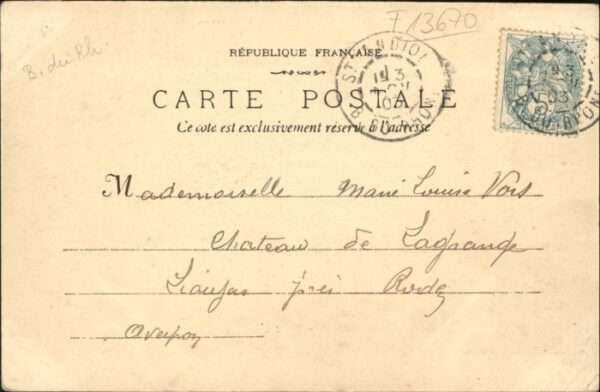 F 13670
B. du Rh.
RÉPUBLIQUE FRANÇAISE
CARTE POSTALE
Ce côté est exclusivement réservé à l'adresse
Mademoiselle Marie Louise Vors
Chateau de Lagrange
près Rodez
Aveyron
13
03